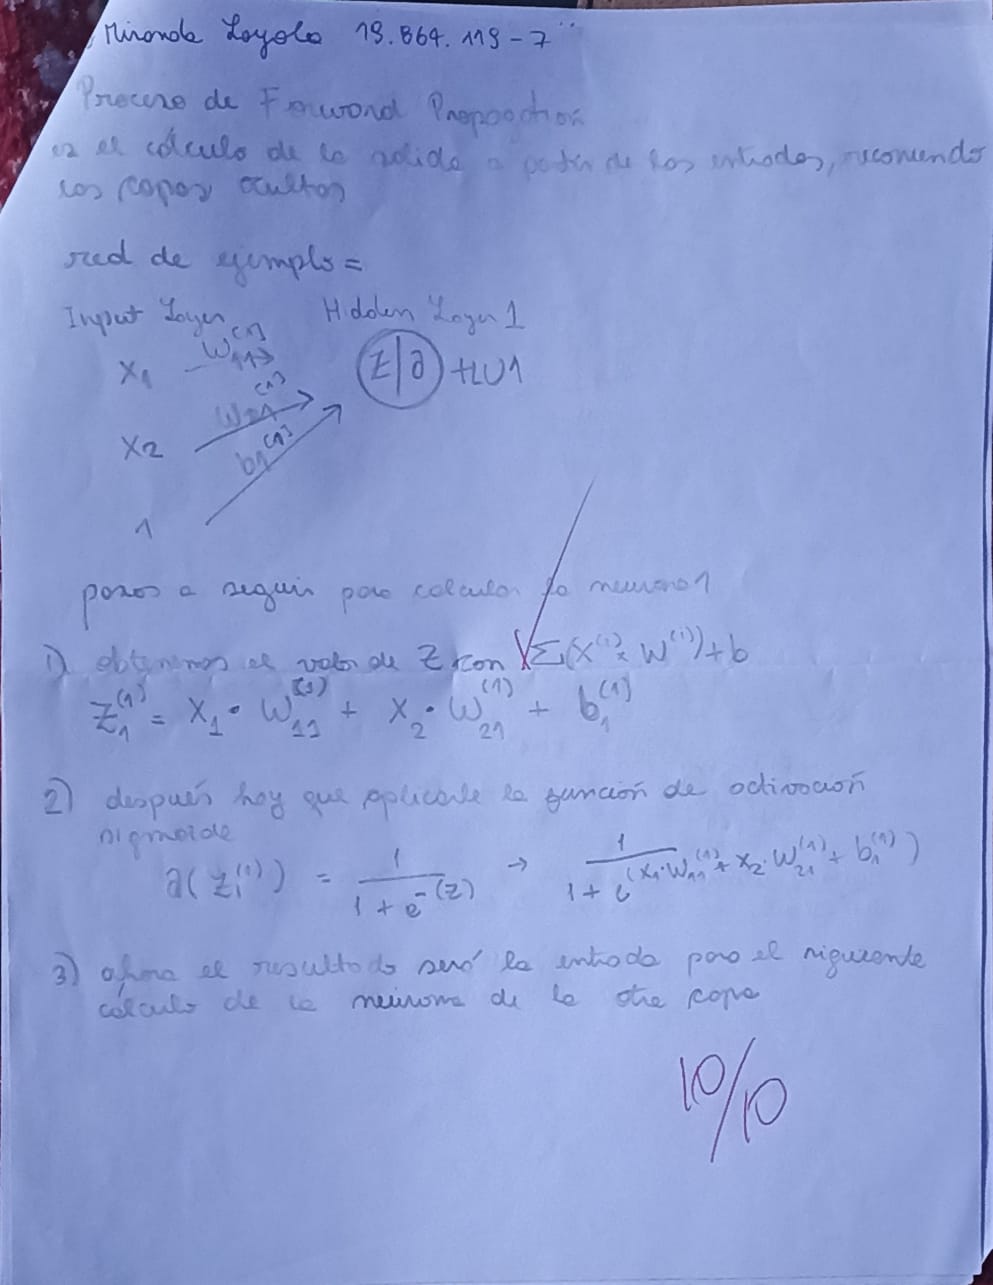 Miranda Loyola 19.864.119-7
Proceso de Forward Propagation
es el cálculo de la salida a partir de las entradas, recorriendo
las capas ocultas
red de ejemplo =
Input Layer Hidden Layer 1
X1 W11(1) z|a
X2 W21(1)
b1(1)
1
pasos a seguir para calcular la neurona 1
1) obtenemos el valor de Z con Σ(X(i) × W(i)) + b
Z1(1) = X1 • W11(1) + X2 • W21(1) + b1(1)
2) después hay que aplicarle la función de activación
sigmoide
a(Z1(1)) = 1 / 1 + e-(z) → 1 / 1 + e(X1·W11(1) + X2·W21(1) + b1(1))
3) ahora el resultado será la entrada para el siguiente
cálculo de la neurona de la otra capa
10/10